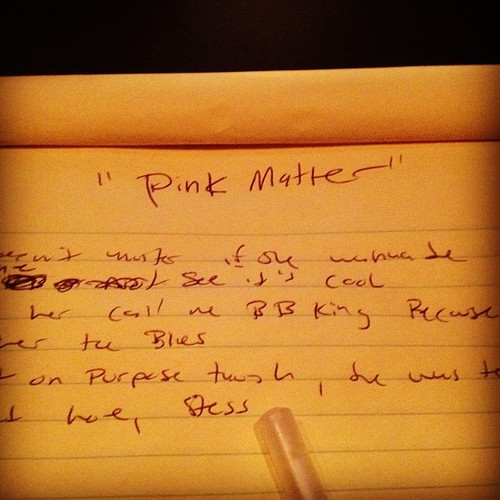 "Pink Matter"
if she wanna be
See it's cool
her call me BB King Because
her the Blues
on Purpose though, she was
I have, Stess